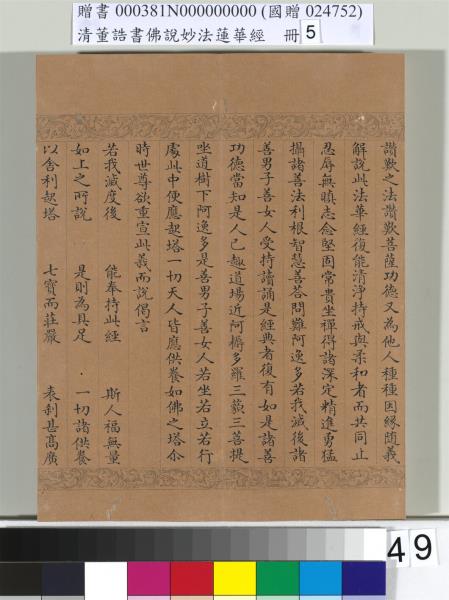 贈書 000381N000000000 (國贈 024752)
清董誥書佛說妙法蓮華經 冊 5
讚歎之法讚歎菩薩功德又為他人種種因緣隨義
解說此法華經復能清淨持戒與柔和者而共同止
忍辱無瞋志念堅固常貴坐禪得諸深定精進勇猛
攝諸善法利根智慧善荅問難阿逸多若我滅後諸
善男子善女人受持讀誦是經典者復有如是諸善
功德當知是人已趣道場近阿耨多羅三藐三菩提
坐道樹下阿逸多是善男子善女人若坐若立若行
處此中便應起塔一切天人皆應供養如佛之塔尒
時世尊欲重宣此義而說偈言
若我滅度後 能奉持此經 斯人福無量
如上之所說 是則為具足 一切諸供養
以舍利起塔 七寶而莊嚴 表剎甚高廣
49